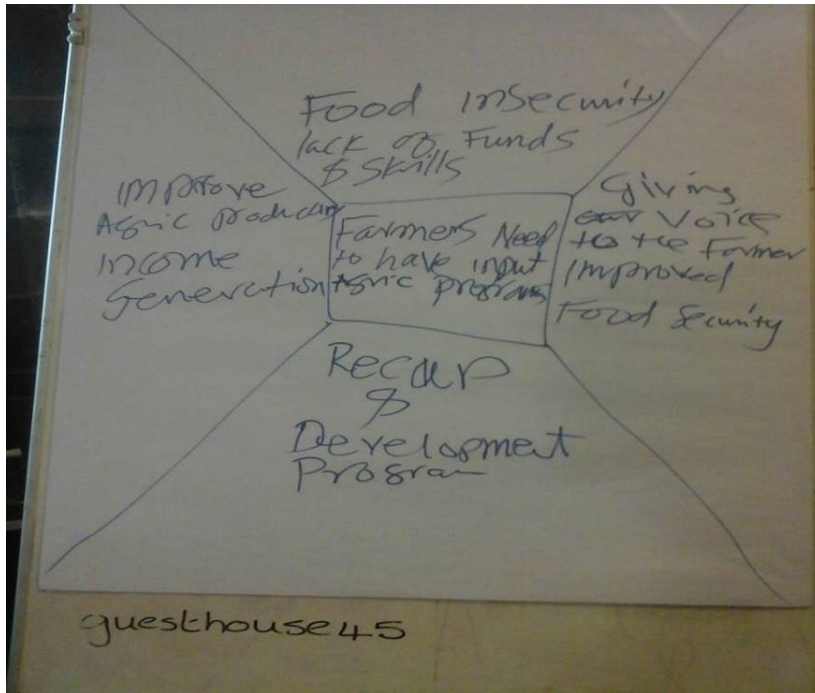 Food Insecurity
lack of Funds
& Skills
Improve
Agric production
Income
Generation
Farmers Need
to have input
Agric programs
Giving
our Voice
to the Farmer
Improved
Food Security
Recap
&
Development
Program
guesthouse45